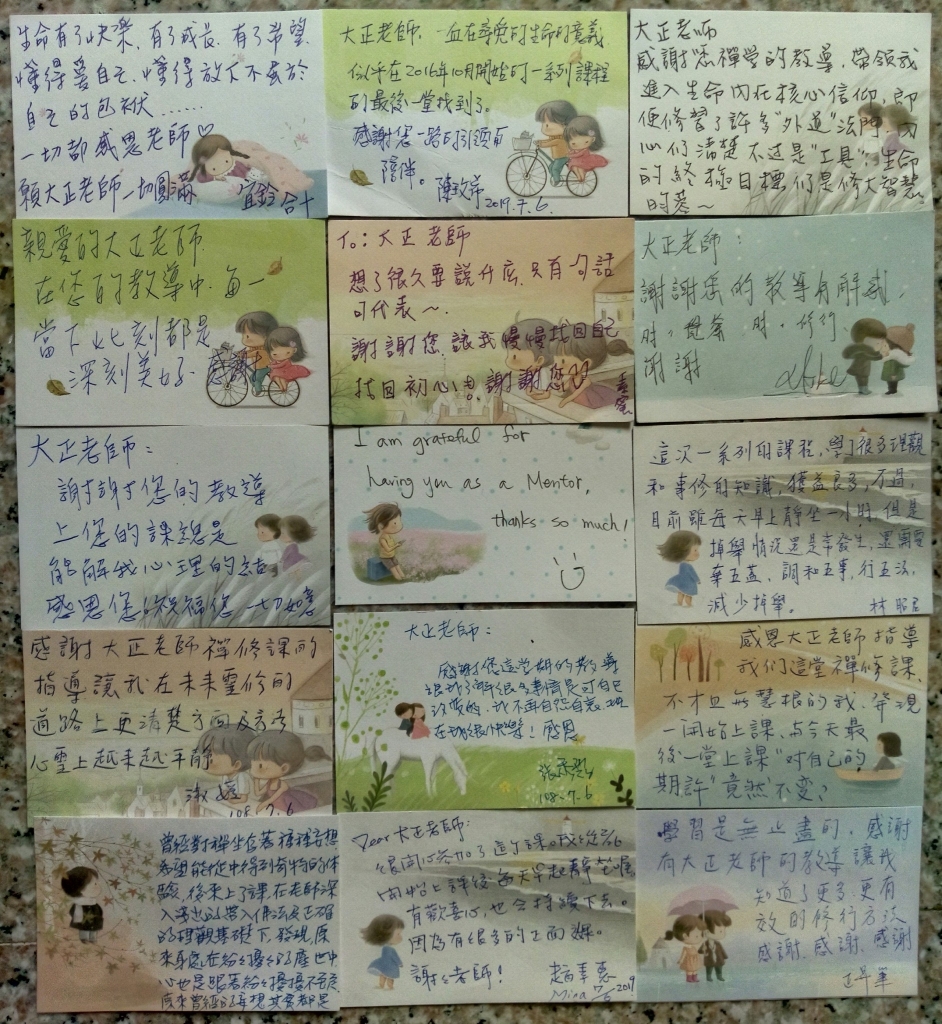 生命有了快樂,有了成長,有了希望
懂得愛自己,懂得放下不屬於
自己的包袱……
一切都感恩老師♡
願大正老師一切圓滿
合十
大正老師,一直在尋覓的生命的意義
似乎在2016年10月開始的一系列課程
的最後一堂找到了。
感謝您一路的引領和
陪伴。
2019.7.6.
大正老師
感謝您禪營的教導,帶領我
進入生命內在核心信仰,即
便修習了許多"外道"法門,內
心仍清楚不過是"工具";生命
的終極目標仍是修大智慧
的善~
親愛的大正老師
在您的教導中,每一
當下此刻都是
深刻美好 感謝
To: 大正老師
想了很久要說什麼,只有一句話
可代表~
謝謝您,讓我慢慢找回自己
找回初心!謝謝您
大正老師:
謝謝您的教導有解惑
時,覺察時,修行
謝謝
大正老師:
謝謝您的教導
上您的課總是
能解我心理的結
感恩您!祝福您一切如意
I am grateful for
having you as a Mentor,
thanks so much!
這次一系列的課程,學習很多理觀
和事修的知識,獲益良多,不過,
目前雖每天早上靜坐一小時,但是
掉舉情況還是常發生,還需要
棄五蓋、調和五事,行五法,
減少掉舉。
林昭君
感謝大正老師禪修課的
指導讓我在未來靈修的
道路上更清楚方向及方法
心靈上越來越平靜
淑婷
108.7.6
大正老師:
感謝您這學期的教導
讓我了解很多事情是可自己
改變的,我不再自怨自哀,
在切很快樂!感恩
108.7.6
感恩大正老師指導
我们這堂禪修課,
不才且無慧根的我,發現
一開始上課,與今天最
後一堂上課"對自己的
期許"竟然不变?
曾經對禪坐存著種種幻想
希望能從中得到奇特的体
驗,後來上了課,在老師深
入淺出的帶入佛法及正確
的理觀基礎下,發現,原
來身處在紛紛擾擾的塵世中
心也是跟著紛紛擾擾不自在
原來曾經的
Dear 大正老師:
很開心參加了這个課。我從2/16
開始上課後每天早起靜坐,喔
有歡喜心,也会持續下去。
因為有很多的正面效果。
謝謝老師!
Mina 7/6 2019
學習是無止盡的,感謝
有大正老師的教導讓我
知道了更多更有
效的修行方法
感謝.感謝.感謝